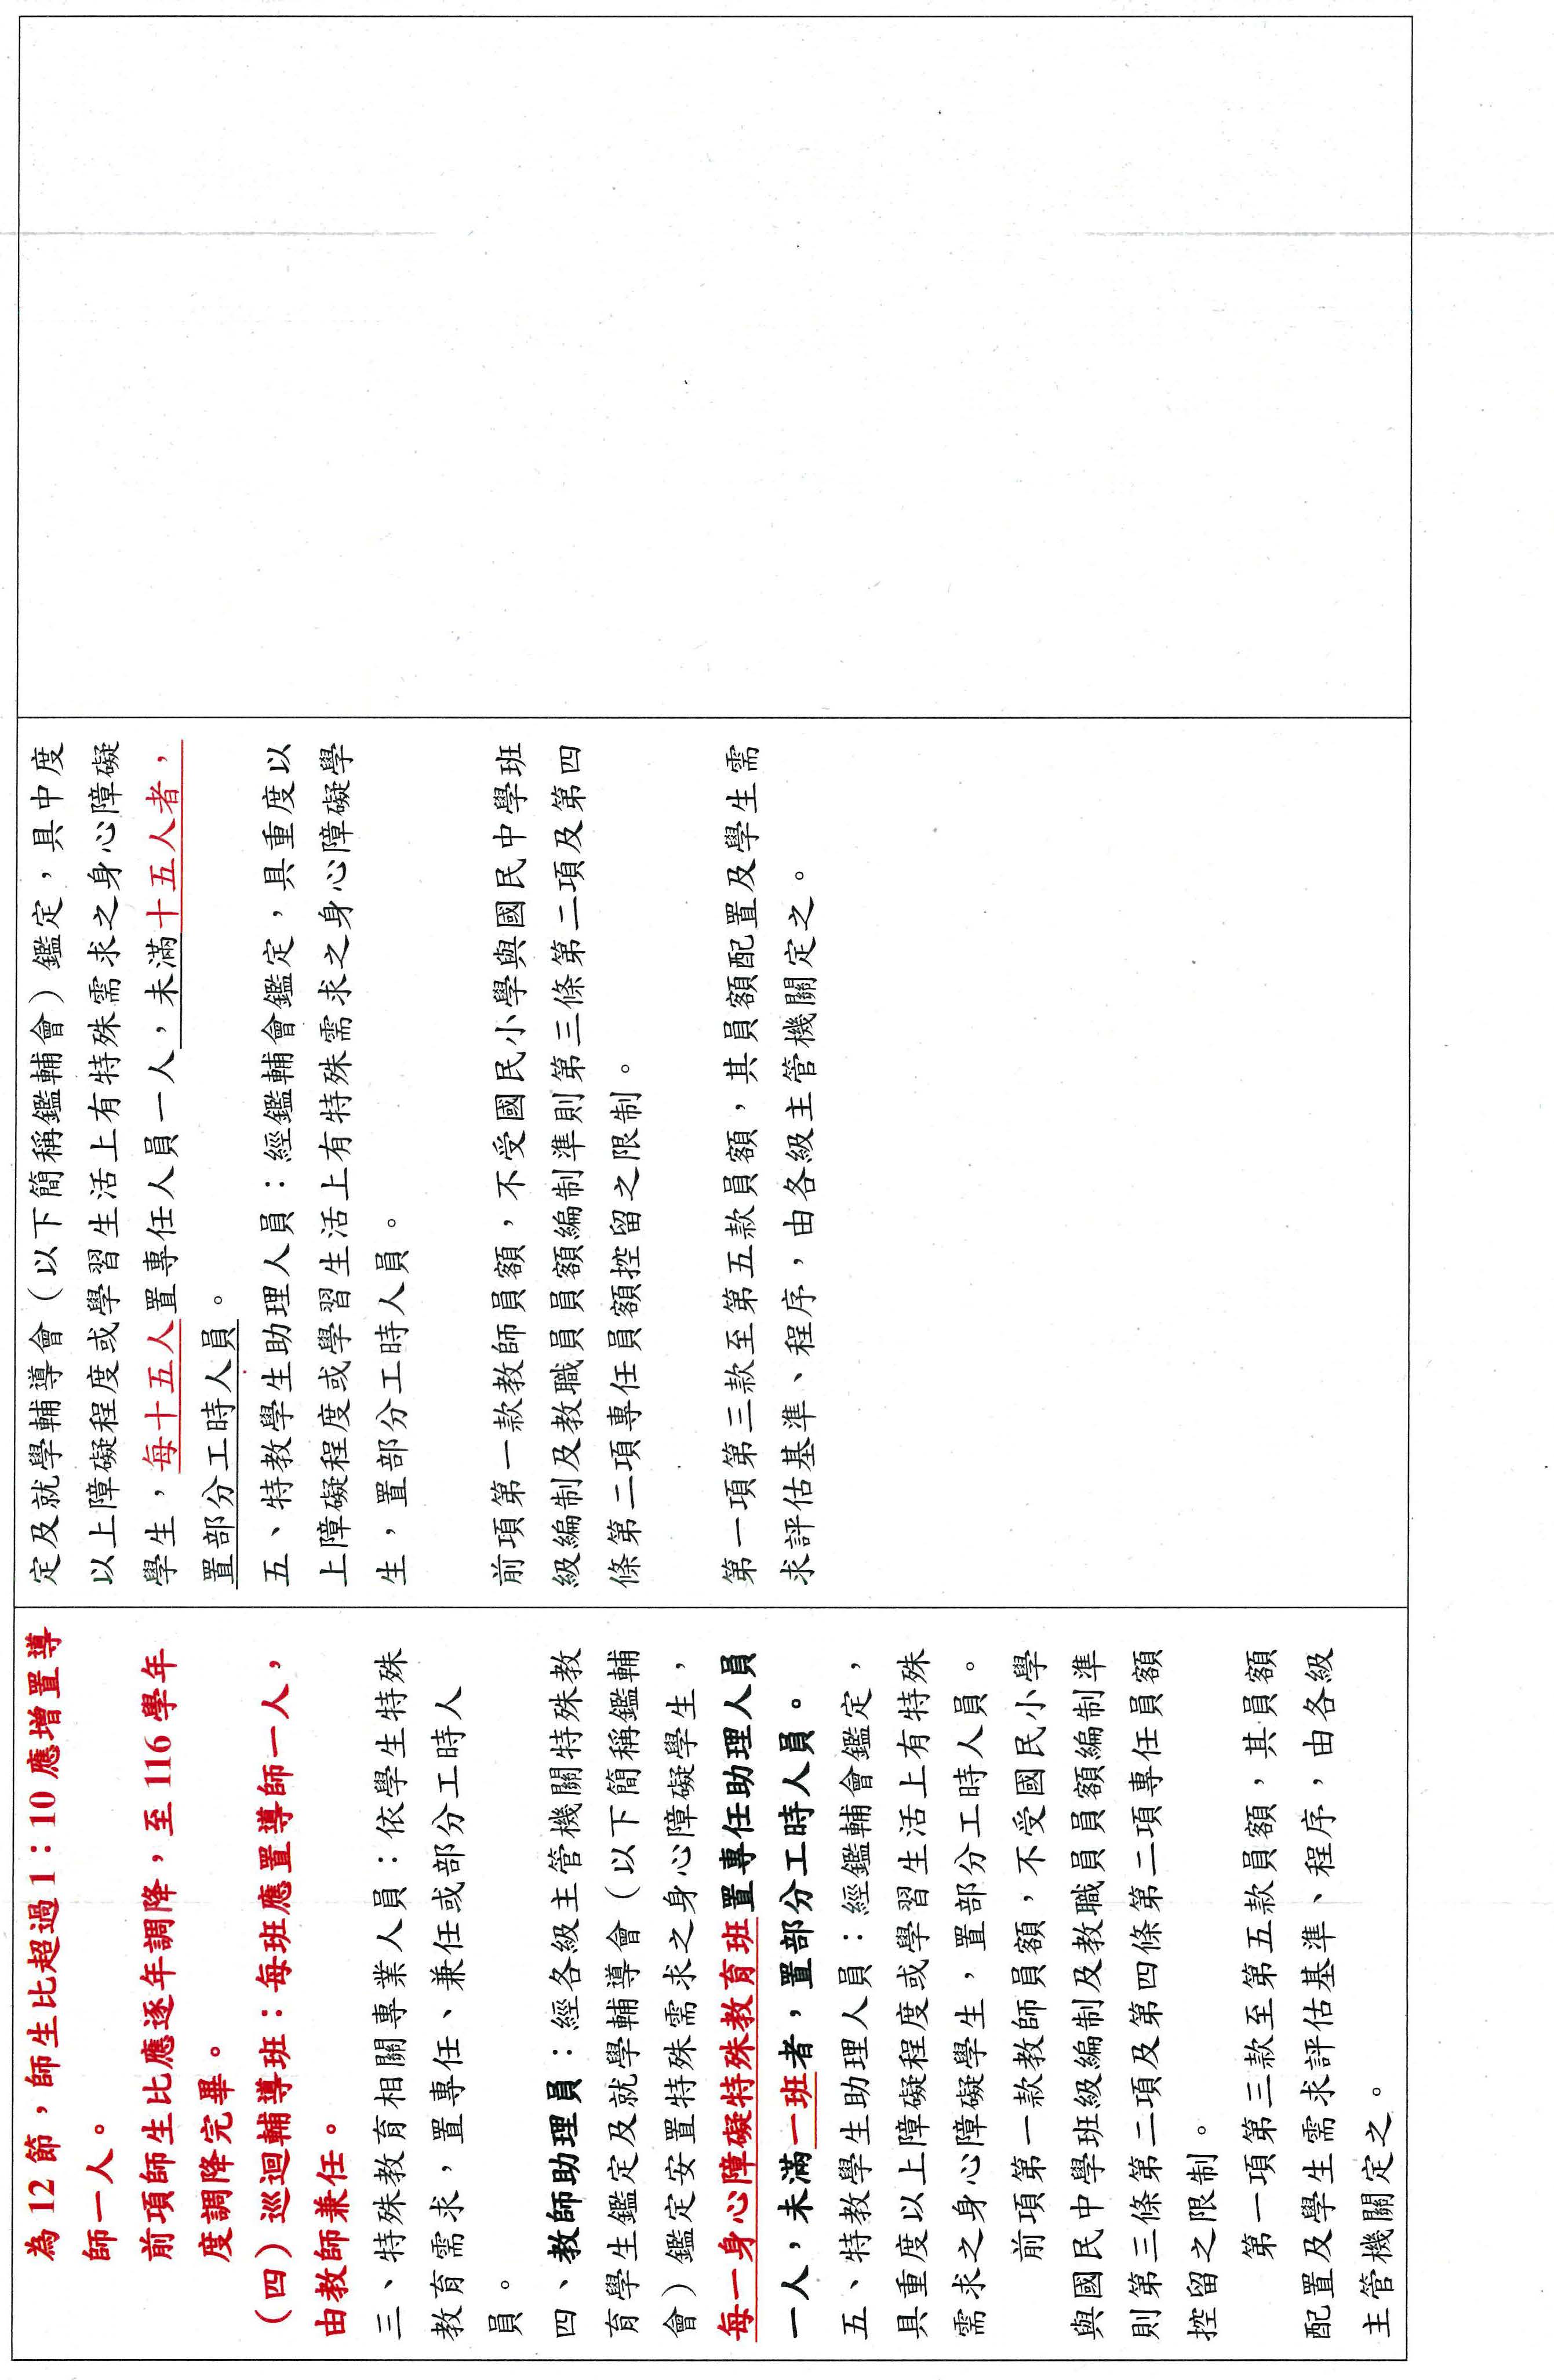 為 12 節，師生比超過 1：10 應增置導
師一人。
前項師生比應逐年調降，至 116 學年
度調降完畢。
（四）巡迴輔導班：每班應置導師一人，
由教師兼任。
三、特殊教育相關專業人員：依學生特殊
教育需求，置專任、兼任或部分工時人
員。
四、教師助理員：經各級主管機關特殊教
育學生鑑定及就學輔導會（以下簡稱鑑輔
會）鑑定安置特殊需求之身心障礙學生，
每一身心障礙特殊教育班置專任助理人員
一人，未滿一班者，置部分工時人員。
五、特教學生助理人員：經鑑輔會鑑定，
具重度以上障礙程度或學習生活上有特殊
需求之身心障礙學生，置部分工時人員。
前項第一款教師員額，不受國民小學
與國民中學班級編制及教職員員額編制準
則第三條第二項及第四條第二項專任員額
控留之限制。
第一項第三款至第五款員額，其員額
配置及學生需求評估基準、程序，由各級
主管機關定之。
定及就學輔導會（以下簡稱鑑輔會）鑑定，具中度
以上障礙程度或學習生活上有特殊需求之身心障礙
學生，每十五人置專任人員一人，未滿十五人者，
置部分工時人員。
五、特教學生助理人員：經鑑輔會鑑定，具重度以
上障礙程度或學習生活上有特殊需求之身心障礙學
生，置部分工時人員。
前項第一款教師員額，不受國民小學與國民中學班
級編制及教職員員額編制準則第三條第二項及第四
條第二項專任員額控留之限制。
第一項第三款至第五款員額，其員額配置及學生需
求評估基準、程序，由各級主管機關定之。